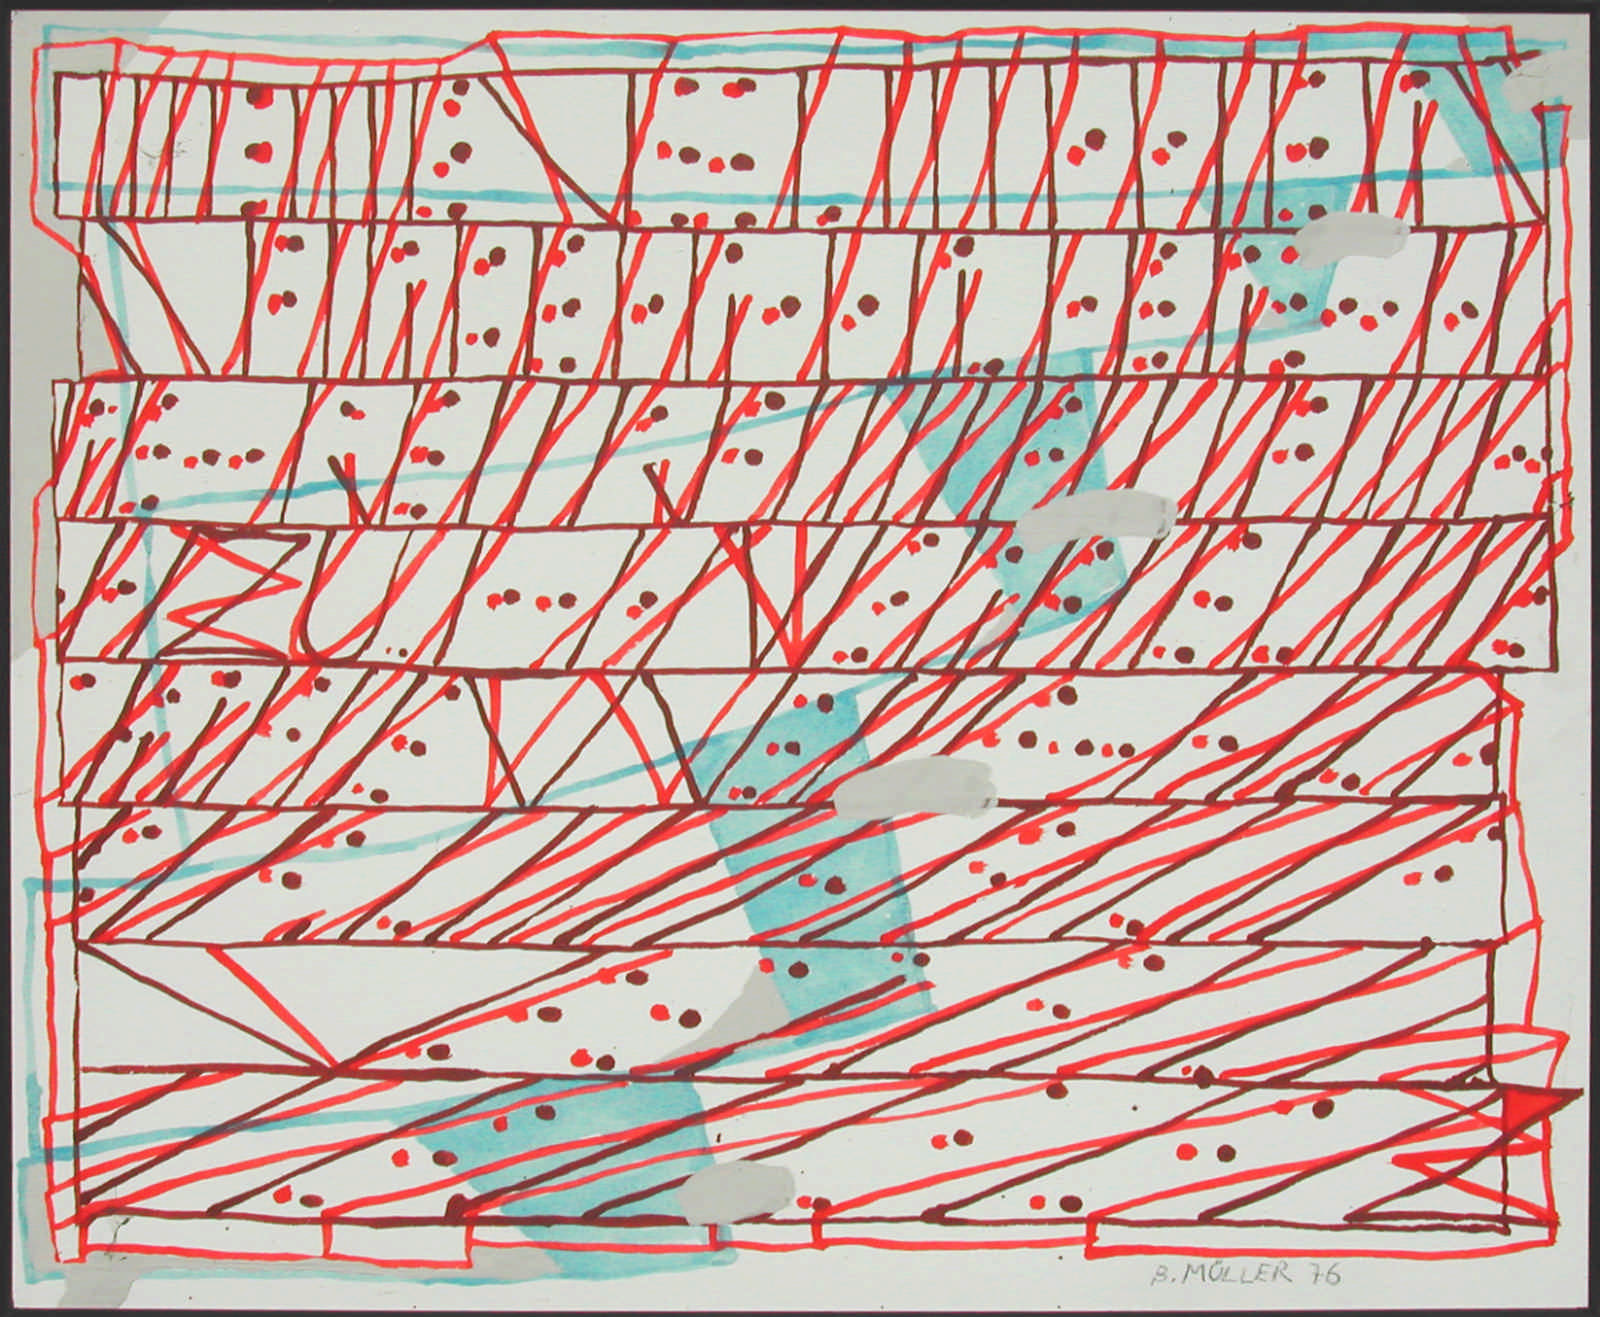 B. MÜLLER 76